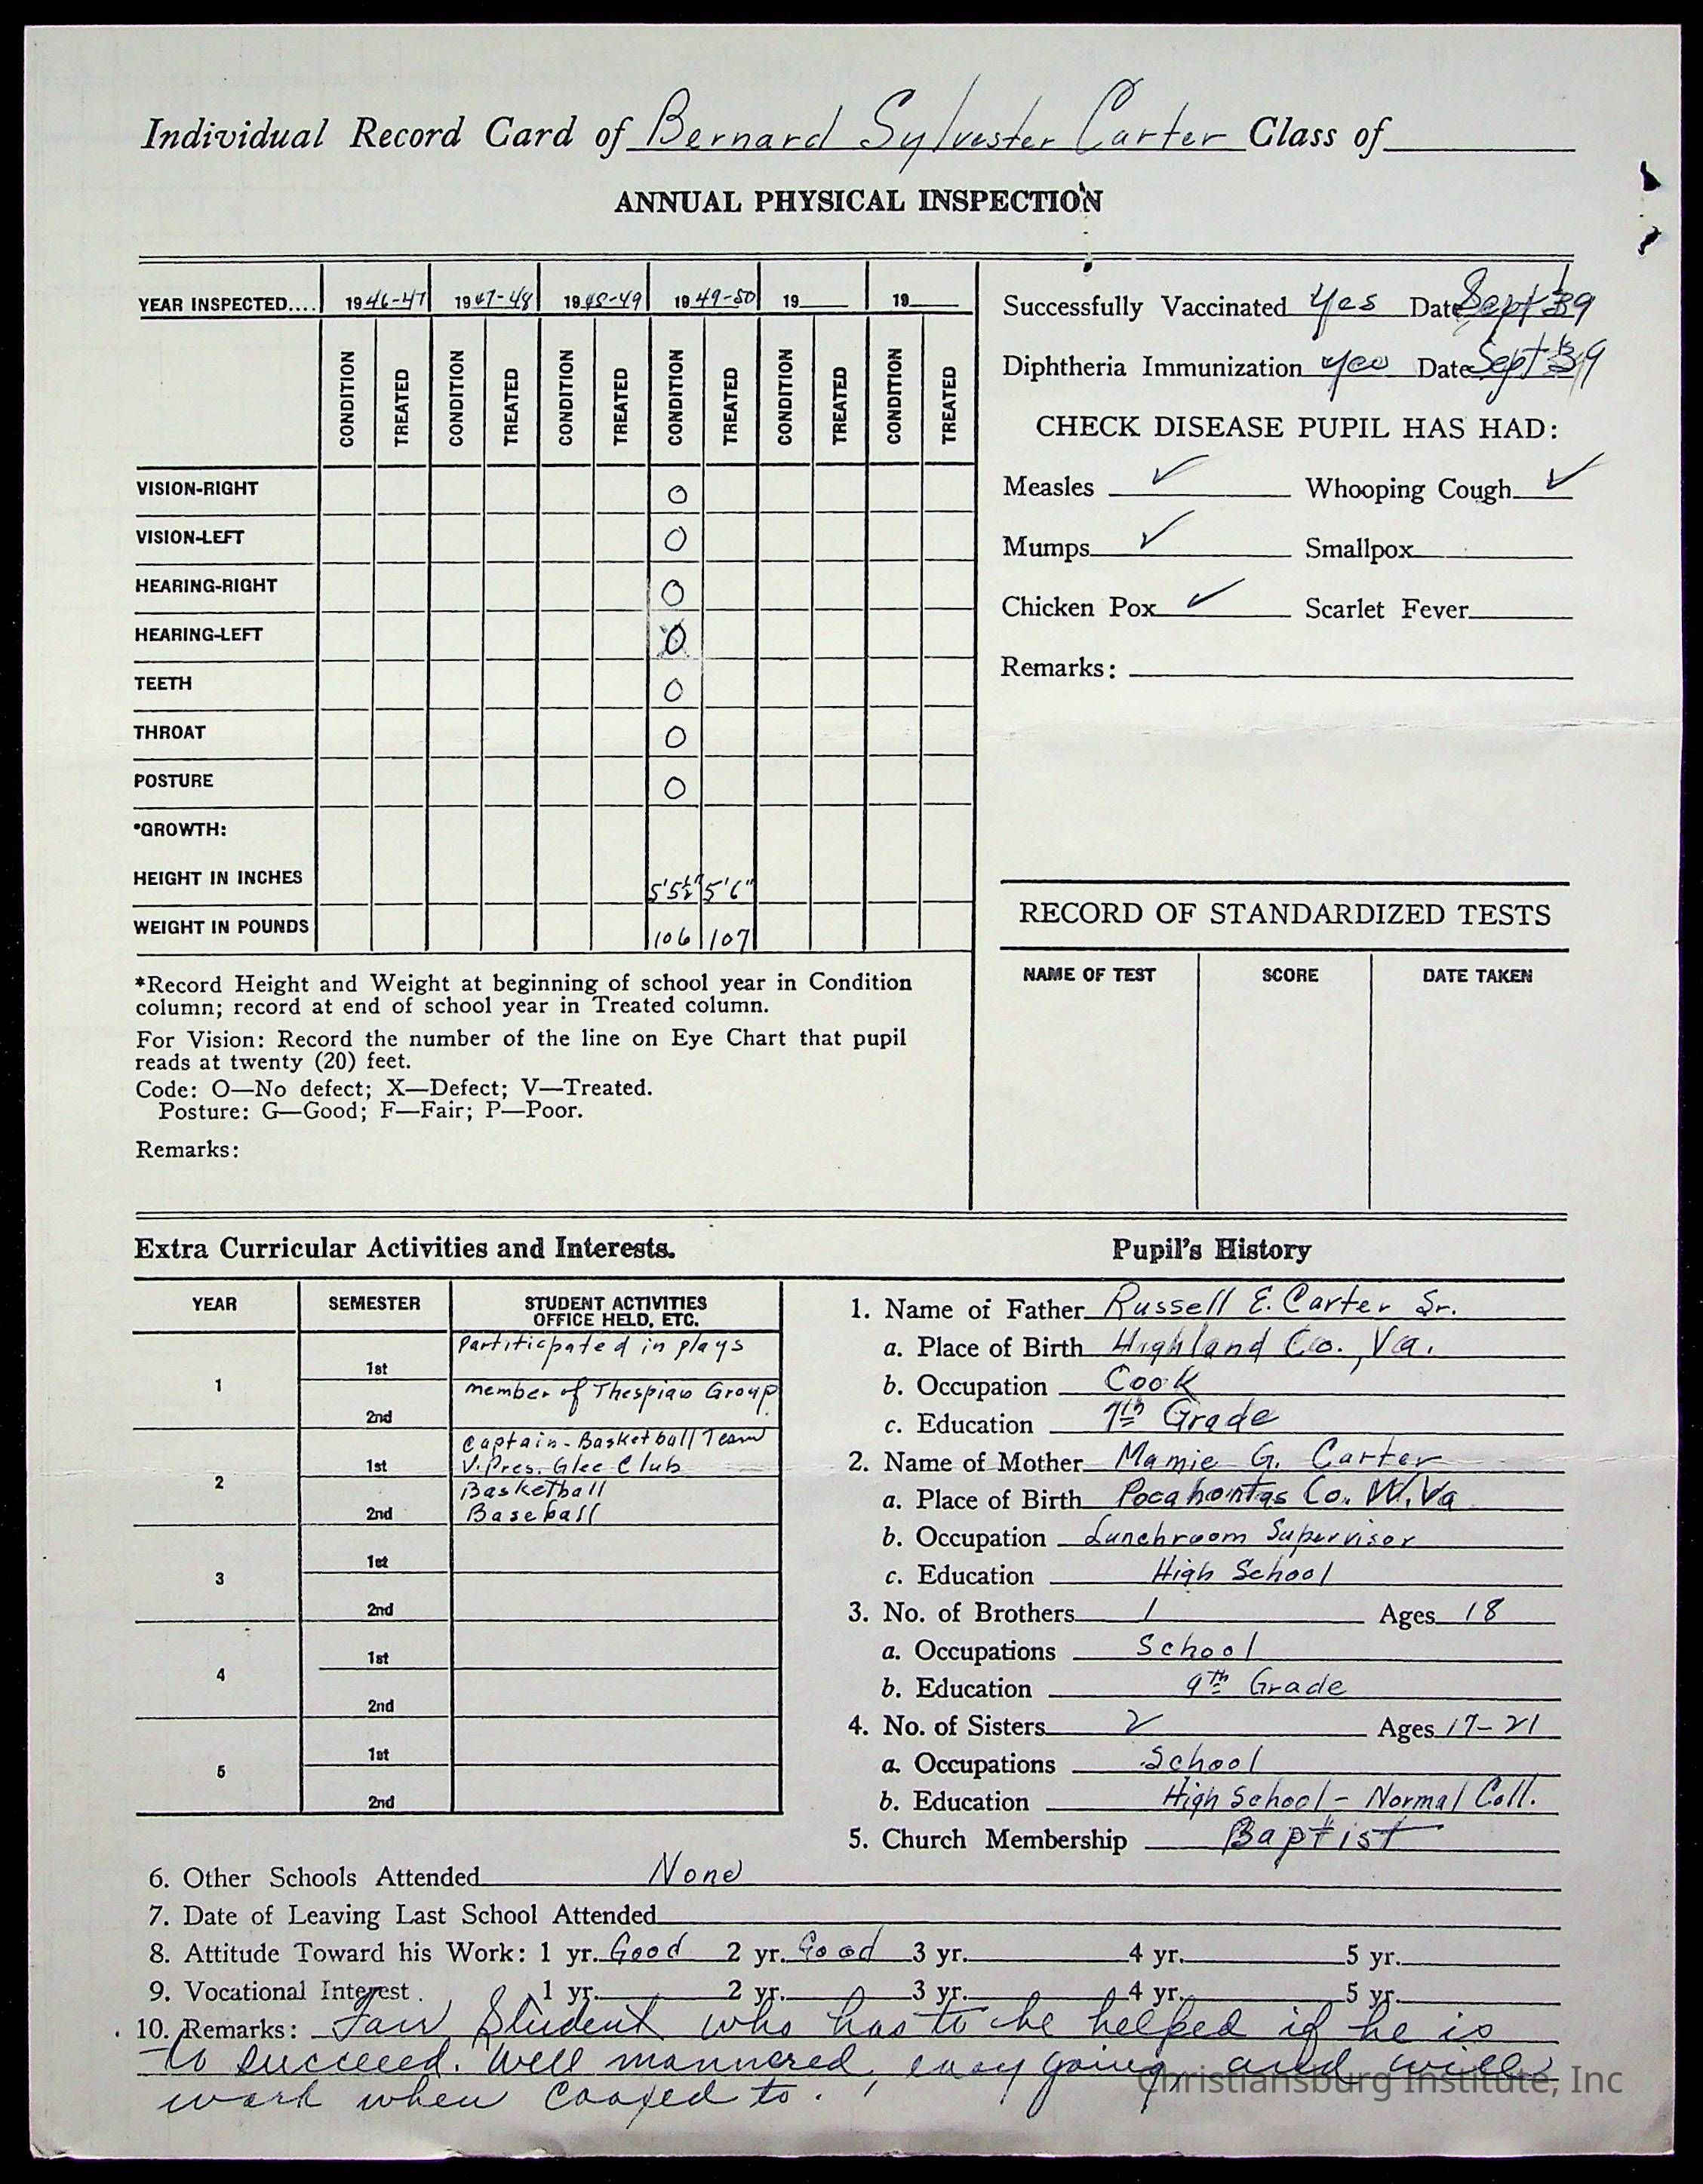 Individual Record Card of Bernard Sylvester Carter Class of
ANNUAL PHYSICAL INSPECTION
YEAR INSPECTED.... 1946-47 1947-48 1948-49 1949-50 19 19
CONDITION TREATED CONDITION TREATED CONDITION TREATED CONDITION TREATED CONDITION TREATED CONDITION TREATED
VISION-RIGHT O
VISION-LEFT O
HEARING-RIGHT O
HEARING-LEFT O
TEETH O
THROAT O
POSTURE O
*GROWTH:
HEIGHT IN INCHES 5'5½" 5'6"
WEIGHT IN POUNDS 106 107
*Record Height and Weight at beginning of school year in Condition
column; record at end of school year in Treated column.
For Vision: Record the number of the line on Eye Chart that pupil
reads at twenty (20) feet.
Code: O—No defect; X—Defect; V—Treated.
Posture: G—Good; F—Fair; P—Poor.
Remarks:
Successfully Vaccinated Yes Date Sept
Diphtheria Immunization yes Date Sept
CHECK DISEASE PUPIL HAS HAD:
Measles ✓ Whooping Cough ✓
Mumps ✓ Smallpox
Chicken Pox ✓ Scarlet Fever
Remarks:
RECORD OF STANDARDIZED TESTS
NAME OF TEST SCORE DATE TAKEN
Extra Curricular Activities and Interests.
YEAR SEMESTER STUDENT ACTIVITIES
OFFICE HELD, ETC.
1 1st Partiticipated in plays
2nd member of Thespian Group
2 1st Captain-Basketball Team
V. Pres. Glee Club
2nd Basketball
Baseball
3 1st
2nd
4 1st
2nd
5 1st
2nd
Pupil's History
1. Name of Father Russell E. Carter Sr.
a. Place of Birth Highland Co., Va.
b. Occupation Cook
c. Education 7th Grade
2. Name of Mother Mamie G. Carter
a. Place of Birth Pocahontas Co. W. Va
b. Occupation Lunchroom Supervisor
c. Education High School
3. No. of Brothers 1 Ages 18
a. Occupations School
b. Education 9th Grade
4. No. of Sisters 2 Ages 17-21
a. Occupations School
b. Education High School - Normal Coll.
5. Church Membership Baptist
6. Other Schools Attended None
7. Date of Leaving Last School Attended
8. Attitude Toward his Work: 1 yr. Good 2 yr. Good 3 yr. 4 yr. 5 yr.
9. Vocational Interest. 1 yr. 2 yr. 3 yr. 4 yr. 5 yr.
10. Remarks: Fair Student who has to be helped if he is
to succeed. Well mannered, easy going, and will
work when coaxed to.
Christiansburg Institute, Inc